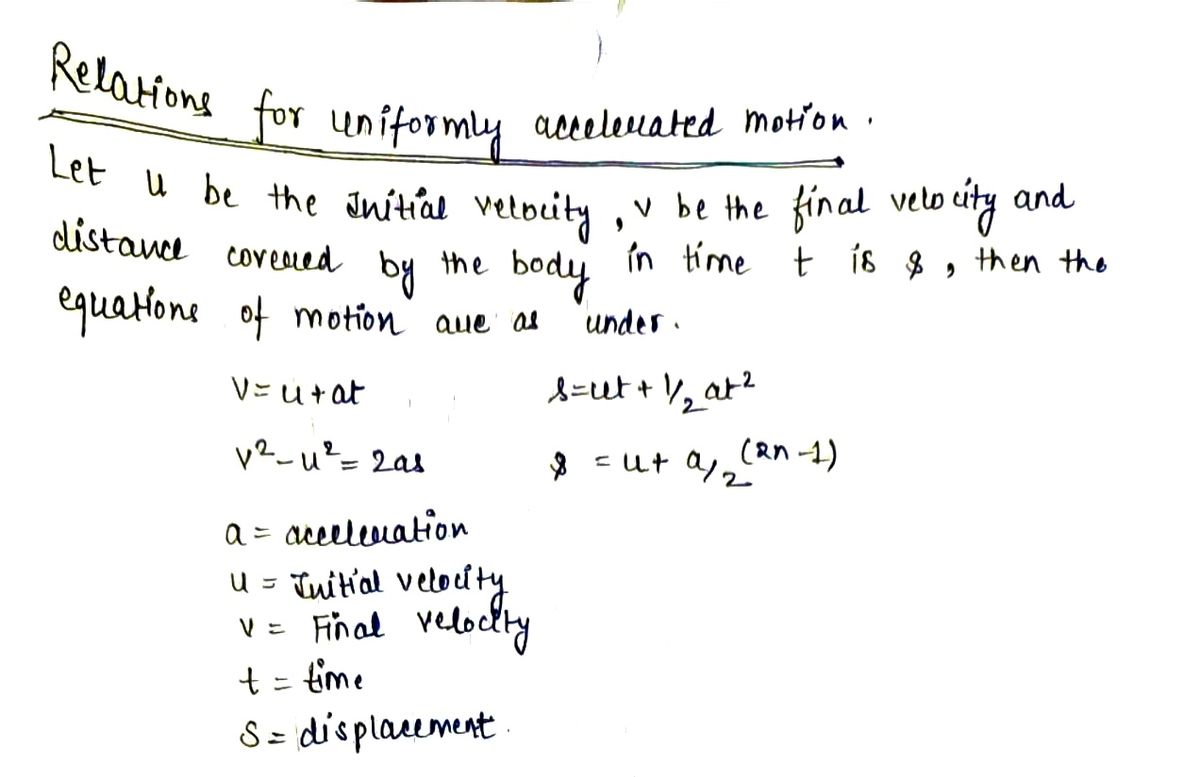 Relations for uniformly accelerated motion.
Let u be the Initial velocity, v be the final velocity and
distance covered by the body in time t is s, then the
equations of motion are as under.
V = u + at
s = ut + 1/2 at²
v² - u² = 2as
s = u + a/2 (2n - 1)
a = acceleration
u = Initial velocity
v = Final velocity
t = time
S = displacement.